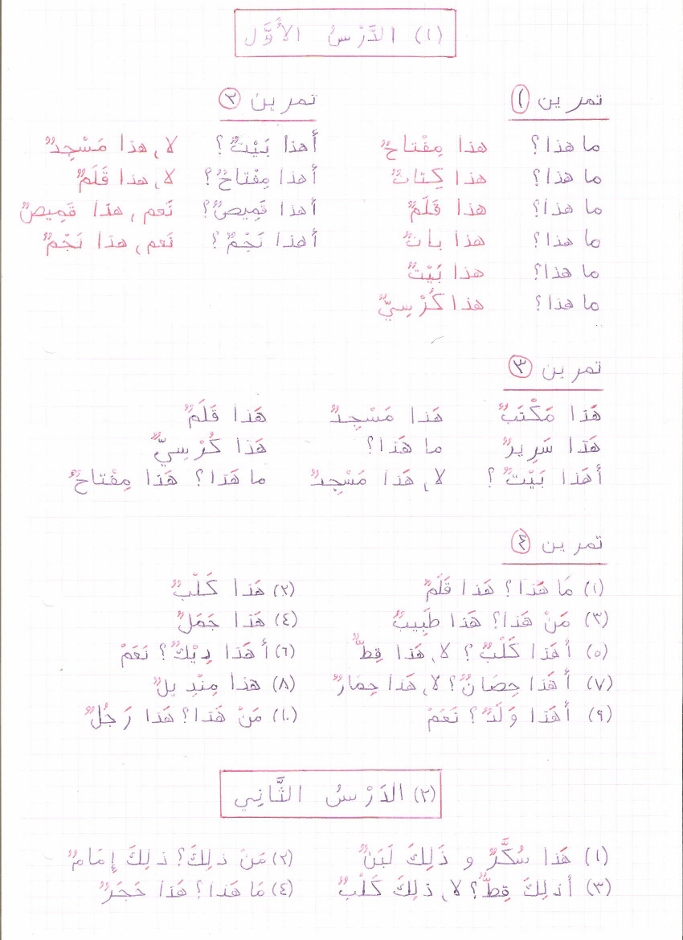 (١) الدَّرْسُ الأَوَّل
تمرين ١
ما هذا؟ هذا مِفْتاحٌ
ما هذا؟ هذا كِتابٌ
ما هذا؟ هذا قَلَمٌ
ما هذا؟ هذا بابٌ
ما هذا؟ هذا بَيْتٌ
ما هذا؟ هذا كُرْسِيٌّ
تمرين ٢
أهذا بَيْتٌ؟ لا، هذا مَسْجِدٌ
أهذا مِفْتاحٌ؟ لا، هذا قَلَمٌ
أهذا قَمِيصٌ؟ نَعم، هذا قَمِيصٌ
أهذا نَجْمٌ؟ نَعم، هذا نَجْمٌ
تمرين ٣
هَذا مَكْتَبٌ هَذا مَسْجِدٌ هَذا قَلَمٌ
هَذا سَرِيرٌ ما هَذا؟ هَذا كُرْسِيٌّ
أهَذا بَيْتٌ؟ لا، هَذا مَسْجِدٌ ما هَذا؟ هَذا مِفْتاحٌ
تمرين ٤
(١) مَا هَذا؟ هَذا قَلَمٌ (٢) هَذا كَلْبٌ
(٣) مَنْ هَذا؟ هَذا طَبِيبٌ (٤) هَذا جَمَلٌ
(٥) أهَذا كَلْبٌ؟ لا، هَذا قِطٌّ (٦) أهَذا دِيْكٌ؟ نَعَمْ
(٧) أهَذا حِصَانٌ؟ لا، هَذا حِمَارٌ (٨) هَذا مِنْدِيلٌ
(٩) أهَذا وَلَدٌ؟ نَعَمْ (١٠) مَنْ هَذا؟ هَذا رَجُلٌ
(٢) الدَرْسُ الثَّانِي
(١) هَذا سُكَّرٌ و ذَلِكَ لَبَنٌ (٢) مَنْ ذلِكَ؟ ذلِكَ إِمَامٌ
(٣) أذلِكَ قِطٌّ؟ لا، ذلِكَ كَلْبٌ (٤) مَا هَذا؟ هَذا حَجَرٌ